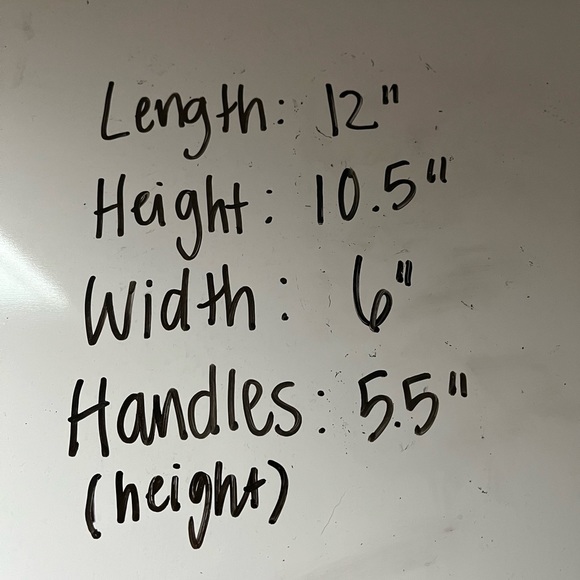 Length: 12"
Height: 10.5"
Width: 6"
Handles: 5.5"
(height)